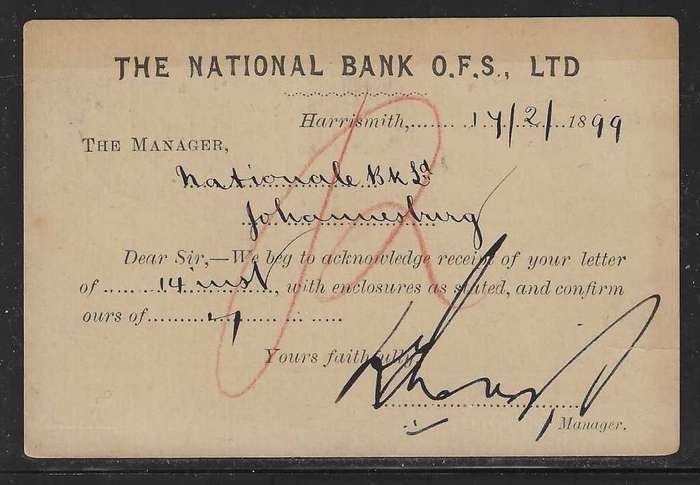 THE NATIONAL BANK O.F.S., LTD
Harrismith, 17/2/1899
THE MANAGER,
Nationale Bk Ld
Johannesburg
Dear Sir,—We beg to acknowledge receipt of your letter
of 14 inst, with enclosures as stated, and confirm
ours of
Yours faithfully,
Manager.